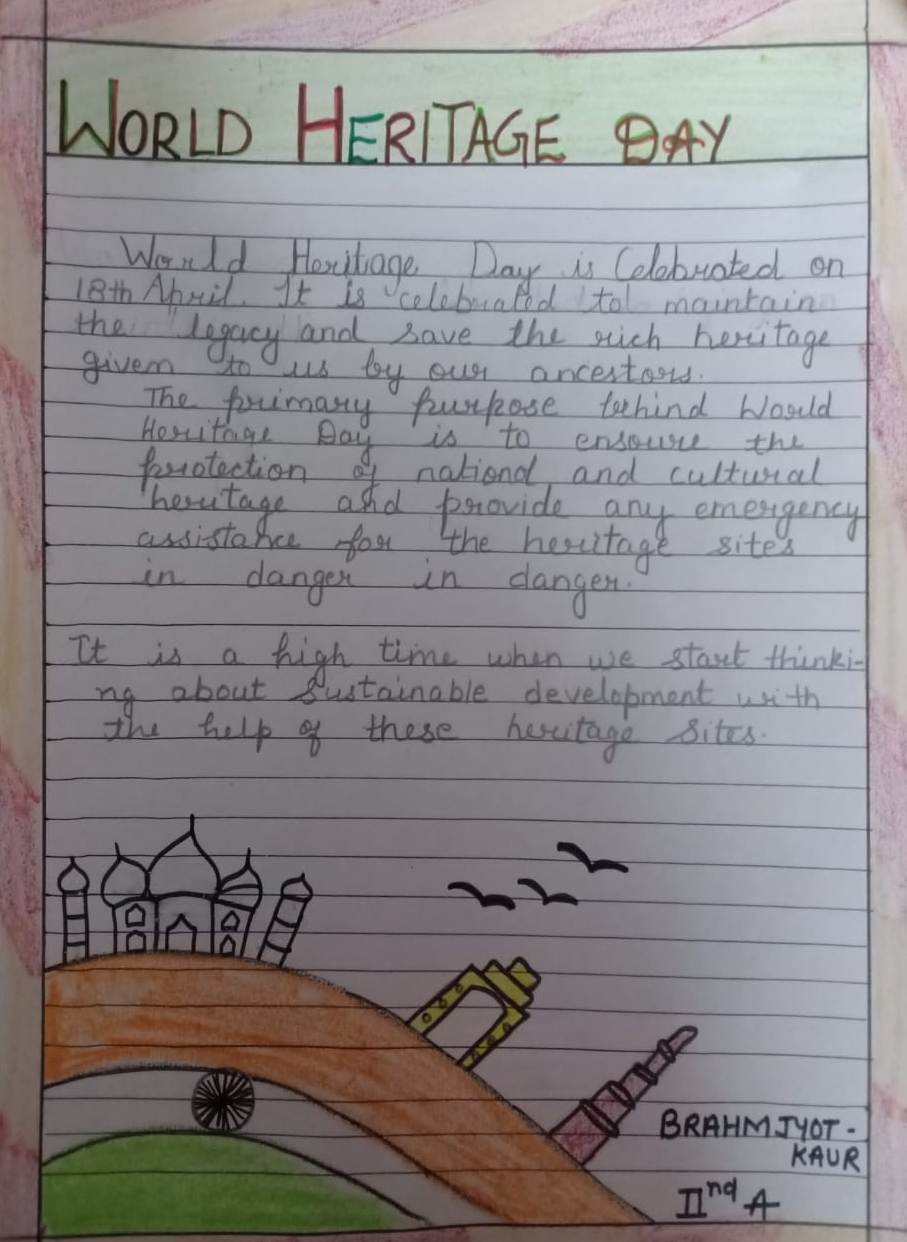 WORLD HERITAGE DAY
World Heritage Day is Celebrated on
18th April. It is celebrated to maintain
the legacy and save the rich heritage
given to us by our ancestors.
The primary purpose behind World
Heritage Day is to ensoure the
protection of national and cultural
heritage and provide any emergency
assistance for the heritage sites
in danger in danger.
It is a high time when we start thinki-
ng about Sustainable development with
the help of these heritage Sites.
BRAHMJYOT -
KAUR
IInd A